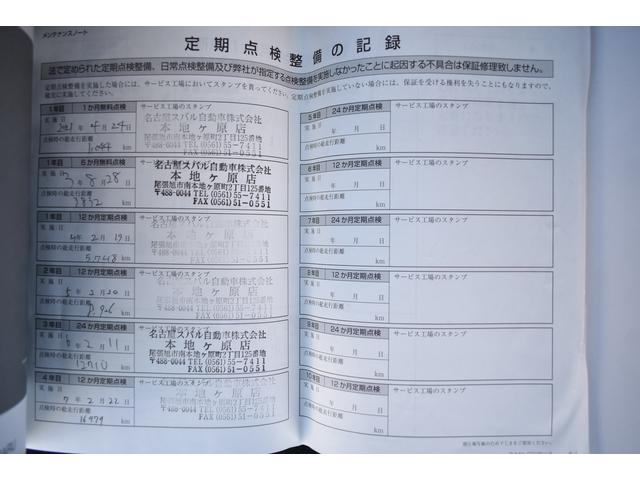 メンテナンスノート
定期点検整備の記録
法で定められた定期点検整備、日常点検整備及び弊社が指定する点検整備を実施しなかったことに起因する不具合は保証修理致しません。
定期点検整備を実施した場合には、サービス工場においてスタンプを貰ってください。定期点検整備を実施していない場合には、保証を受ける権利を失うこともなりますので、
確実に実施してください。
1年目 1か月無料点検 サービス工場のスタンプ
実施日
2021年4月24日
点検時の総走行距離
km
名古屋スバル自動車株式会社
本地ヶ原店
尾張旭市南本地ヶ原町2丁目125番地
〒488-0044 TEL (0561) 55-7411
FAX (0561) 51-0551
1年目 6か月無料点検 サービス工場のスタンプ
実施日
3年8月28日
点検時の総走行距離
3832 km
名古屋スバル自動車株式会社
本地ヶ原店
尾張旭市南本地ヶ原町2丁目125番地
〒488-0044 TEL (0561) 55-7411
FAX (0561) 51-0551
1年目 12か月定期点検 サービス工場のスタンプ
実施日
4年2月19日
点検時の総走行距離
km
名古屋スバル自動車株式会社
本地ヶ原店
尾張旭市南本地ヶ原町2丁目125番地
〒488-0044 TEL (0561) 55-7411
FAX (0561) 51-0551
2年目 12か月定期点検 サービス工場のスタンプ
実施日
5年2月20日
点検時の総走行距離
km
名古屋スバル自動車株式会社
本地ヶ原店
尾張旭市南本地ヶ原町2丁目125番地
〒488-0044 TEL (0561) 55-7411
FAX (0561) 51-0551
3年目 24か月定期点検 サービス工場のスタンプ
実施日
6年2月11日
点検時の総走行距離
12710 km
名古屋スバル自動車株式会社
本地ヶ原店
尾張旭市南本地ヶ原町2丁目125番地
〒488-0044 TEL (0561) 55-7411
FAX (0561) 51-0551
4年目 12か月定期点検 サービス工場のスタンプ
実施日
7年2月22日
点検時の総走行距離
16979 km
名古屋スバル自動車株式会社
本地ヶ原店
尾張旭市南本地ヶ原町2丁目125番地
〒488-0044 TEL (0561) 55-7411
FAX (0561) 51-0551
5年目 24か月定期点検 サービス工場のスタンプ
実施日
年 月 日
点検時の総走行距離
km
6年目 12か月定期点検 サービス工場のスタンプ
実施日
年 月 日
点検時の総走行距離
km
7年目 24か月定期点検 サービス工場のスタンプ
実施日
年 月 日
点検時の総走行距離
km
8年目 12か月定期点検 サービス工場のスタンプ
実施日
年 月 日
点検時の総走行距離
km
9年目 24か月定期点検 サービス工場のスタンプ
実施日
年 月 日
点検時の総走行距離
km
10年目 12か月定期点検 サービス工場のスタンプ
実施日
年 月 日
点検時の総走行距離
km